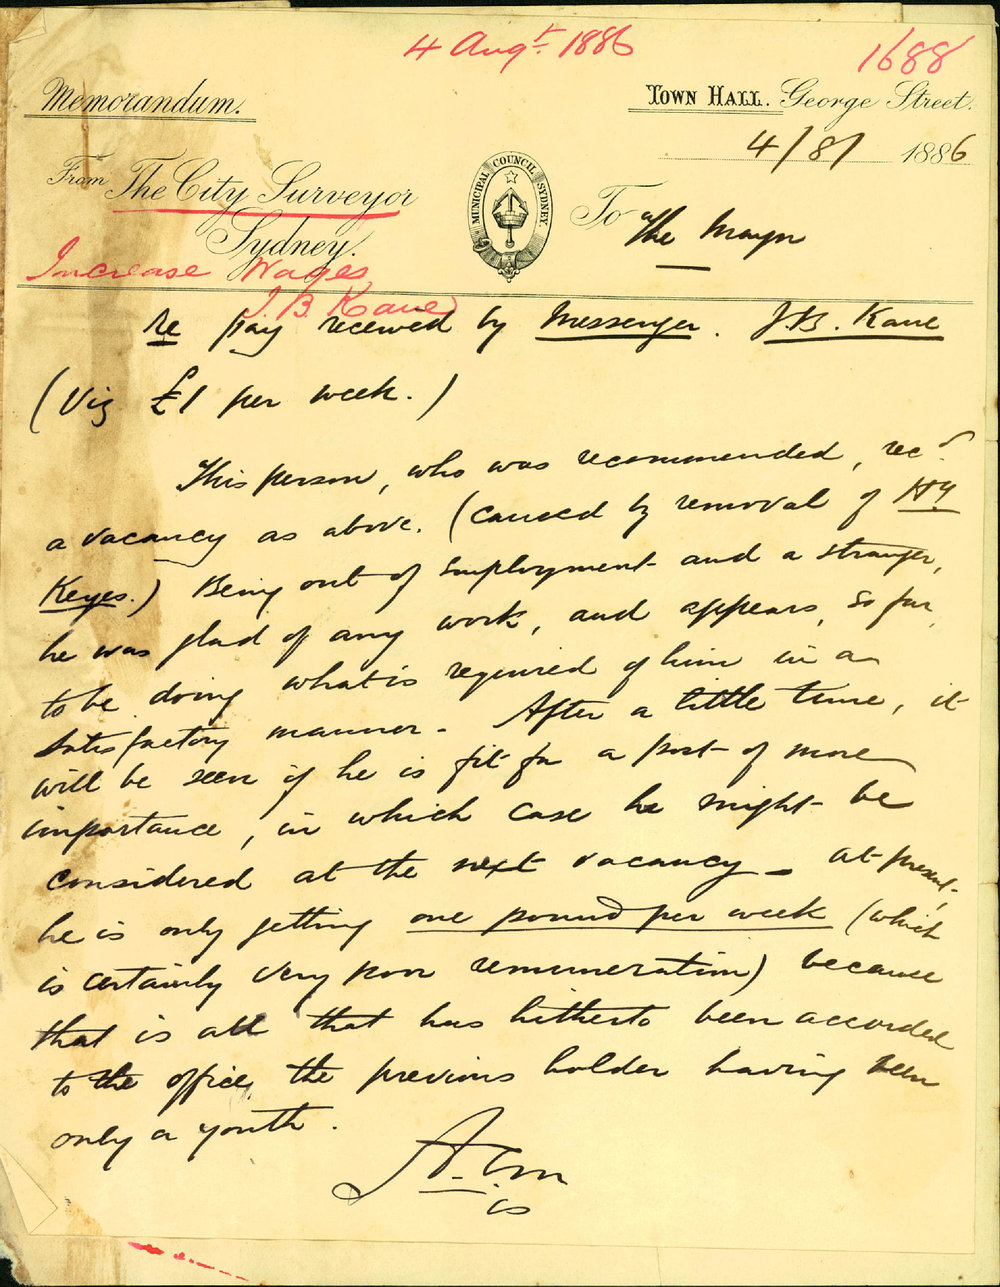 4 Augt. 1886
1688
Memorandum.
TOWN HALL. George Street.
4/8/ 1886
From The City Surveyor
Sydney.
MUNICIPAL COUNCIL SYDNEY.
To The Mayor
Increase Wages
J. B. Kane
re pay received by Messenger. J.B. Kane
(Viz £1 per week.)
This person, who was recommended, recd.
a vacancy as above. (caused by removal of Hy
Keyes.) Being out of employment and a stranger,
he was glad of any work, and appears, so far,
to be doing what is required of him in a
satisfactory manner. After a little time, it
will be seen if he is fit for a post of more
importance, in which case he might be
considered at the next vacancy - at present,
he is only getting one pound per week (which
is certainly very poor remuneration) because
that is all that has hitherto been accorded
to the office, the previous holder having been
only a youth.